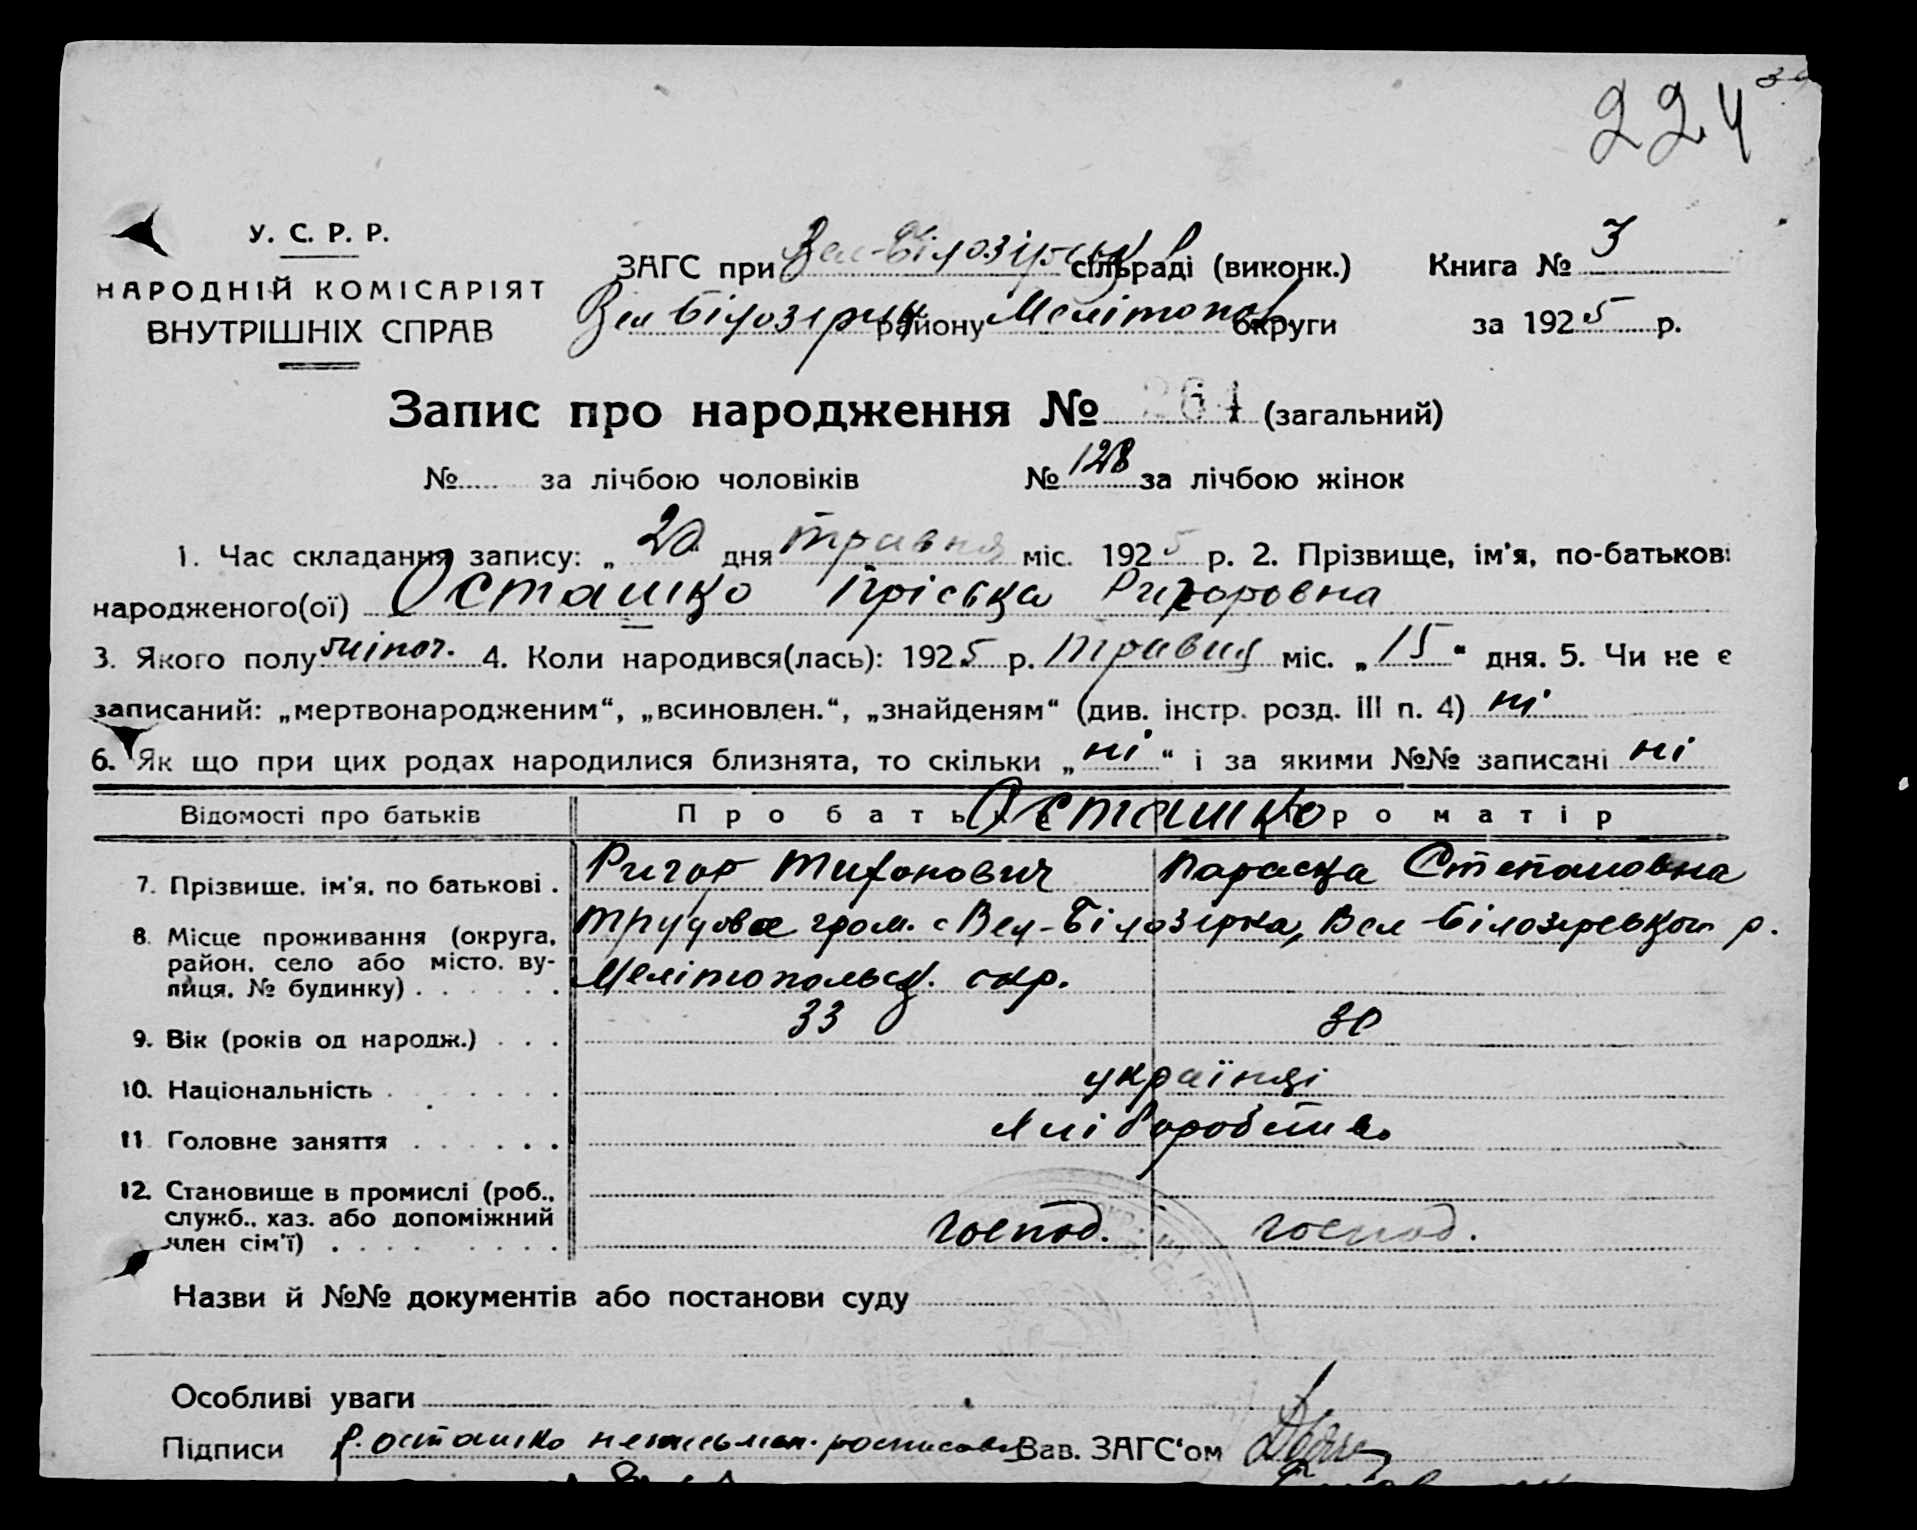 224
У. С. Р. Р.
НАРОДНІЙ КОМІСАРІЯТ
ВНУТРІШНІХ СПРАВ
ЗАГС при Вел-Білозірськ сільраді (виконк.)
Книга № 3
Вел Білозірськ району Мелітопол округи
за 1925 р.
Запис про народження № 264 (загальний)
№ за лічбою чоловіків № 128 за лічбою жінок
1. Час складання запису: „ 20 дня травня міс. 1925 р. 2. Прізвище, ім'я, по-батькові
народженого(ої) Осташко Пріська Ригоровна
3. Якого полу жіноч. 4. Коли народився(лась): 1925 р. травня міс. „ 15 “ дня. 5. Чи не є
записаний: „мертвонародженим“, „всиновлен.“, „знайденям“ (див. інстр. розд. III п. 4) ні
6. Як що при цих родах народилися близнята, то скільки „ ні “ і за якими №№ записані ні
Відомості про батьків Про батька Осташко Про матір
7. Прізвише, ім'я, по батькові . Ригор Тихонович Параска Степановна
8. Місце проживання (округа, район, село або місто, вулиця, № будинку) . . . . . . Трудова гром. с Вел-Білозірка, Вел Білозірського р.
Мелітопольськ. окр.
9. Вік (років од народж.) . . . 33 30
10. Національність . . . . . . українці
11 Головне заняття . . . . . . хліборобство
12. Становище в промислі (роб., служб., хаз. або допоміжний член сім'ї) . . . . . господ. господ.
Назви й №№ документів або постанови суду
Особливі уваги
Підписи Р. Осташко неписьмен. росписався Зав. ЗАГС'ом